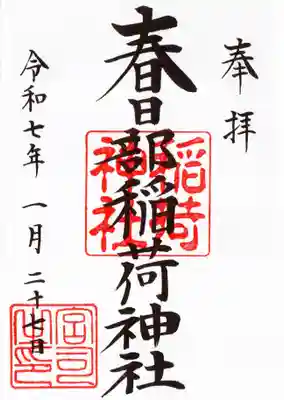 奉拝
春日部稲荷神社
稲荷神社
令和七年 一月 二十七日
宮司之印